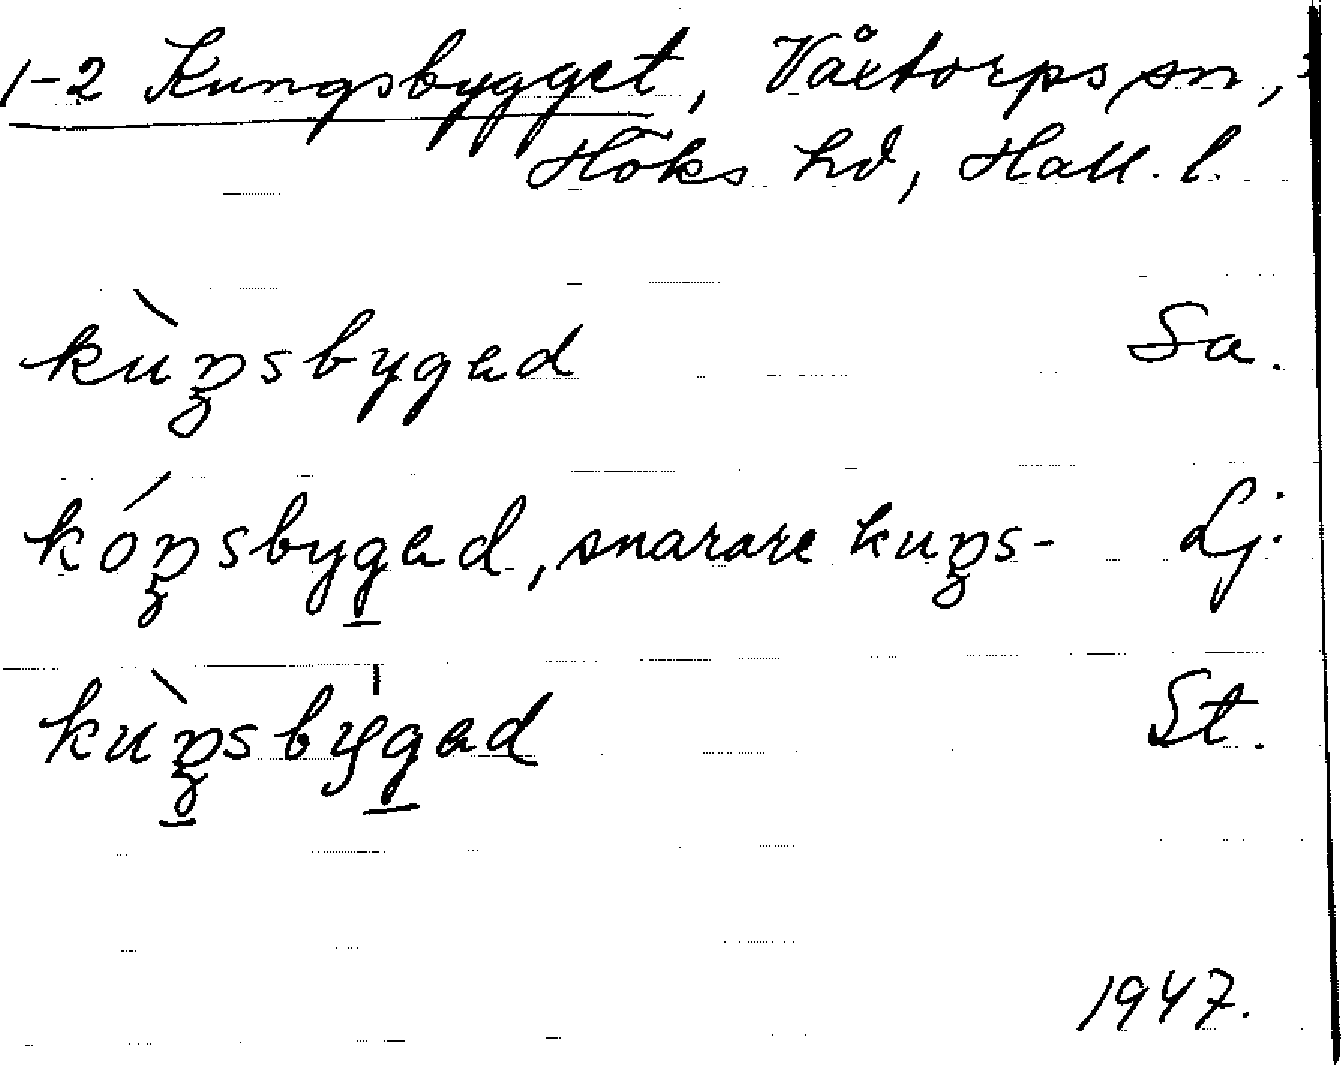 1-2 Kungsbygget, Våxtorps sn,
Höks hd, Hall. l.
kùŋsbygad Sa.
kóŋsbygad, snarare kuŋs- Lj.
kùŋsbygad St.
1947.